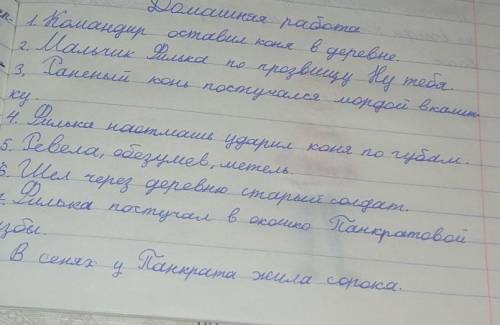 Домашняя работа
1. Командир оставил коня в деревне.
2. Мальчик Филька по прозвищу Ну тебя.
3. Раненый конь постучался мордой в калит
ку.
4. Филька наотмашь ударил коня по губам.
5. Ревела, обезумев, метель.
6. Шел через деревню старый солдат.
Филька постучал в окошко Панкратовой
избы.
В сенях у Панкрата жила сорока.